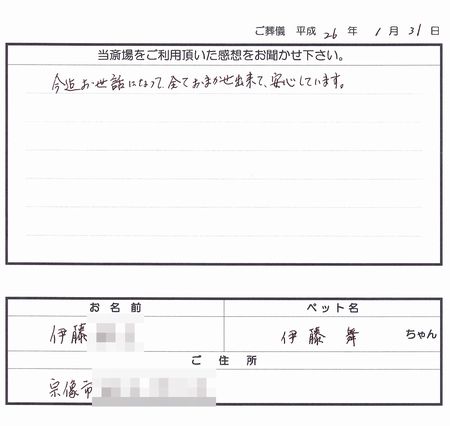 ご葬儀 平成 26 年 1 月 31 日
当斎場をご利用頂いた感想をお聞かせ下さい。
今迄お世話になって、全ておまかせ出来て、安心しています。
お名前 ペット名
伊藤 伊藤 舞 ちゃん
ご住所
宗像市